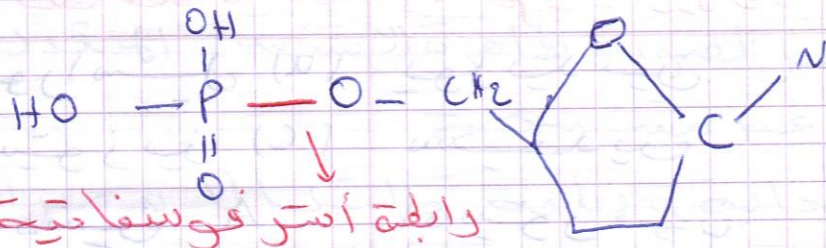 OH
O
N
HO – P – O – CH2
C
O
رابطة أستر فوسفاتية